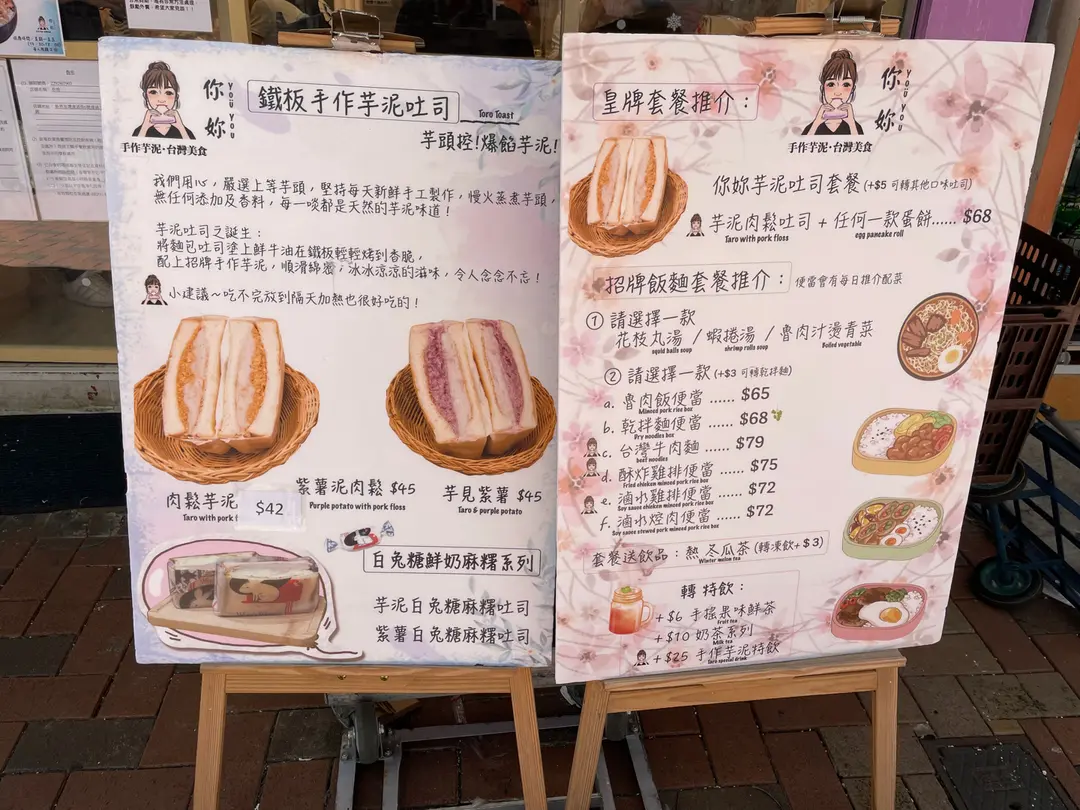 你妳
YOU YOU
手作芋泥·台灣美食
鐵板手作芋泥吐司
Toro Toast
芋頭控!爆餡芋泥!
我們用心，嚴選上等芋頭，堅持每天新鮮手工製作，慢火蒸煮芋頭，
無任何添加及香料，每一啖都是天然的芋泥味道！
芋泥吐司之誕生：
將麵包吐司塗上鮮牛油在鐵板輕輕烤到香脆，
配上招牌手作芋泥，順滑綿密，冰冰涼涼的滋味，令人念念不忘！
小建議～吃不完放到隔天加熱也很好吃的！
肉鬆芋泥 $42
Taro with pork f
紫薯泥肉鬆 $45
Purple potato with pork floss
芋見紫薯 $45
Taro & purple potato
白兔糖鮮奶麻糬系列
芋泥白兔糖麻糬吐司
紫薯白兔糖麻糬吐司
皇牌套餐推介：
你妳
YOU YOU
手作芋泥·台灣美食
你妳芋泥吐司套餐 (+$5 可轉其他口味吐司)
芋泥肉鬆吐司 + 任何一款蛋餅...... $68
Taro with pork floss egg pancake roll
招牌飯麵套餐推介： 便當會有每日推介配菜
① 請選擇一款
花枝丸湯 / 蝦捲湯 / 魯肉汁燙青菜
sqold balls soup shrimp rolls soup Boiled vegetable
② 請選擇一款 (+$3 可轉乾拌麵)
a. 魯肉飯便當 ...... $65
Minced pork rice box
b. 乾拌麵便當 ...... $68
Dry noodles box
c. 台灣牛肉麵 ...... $79
beef noodles
d. 酥炸雞排便當 ...... $75
Fried chicken minced pork rice box
e. 滷水雞排便當 ...... $72
Soy sauce chicken minced pork rice box
f. 滷水焢肉便當 ...... $72
Soy sauce stewed pork minced pork rice box
套餐送飲品：熱 冬瓜茶 (轉凍飲+$3)
Winter melon tea
轉 特飲：
+$6 手搖果味鮮茶
Fruit tea
+$10 奶茶系列
Milk tea
+$25 手作芋泥特飲
Taro special drink